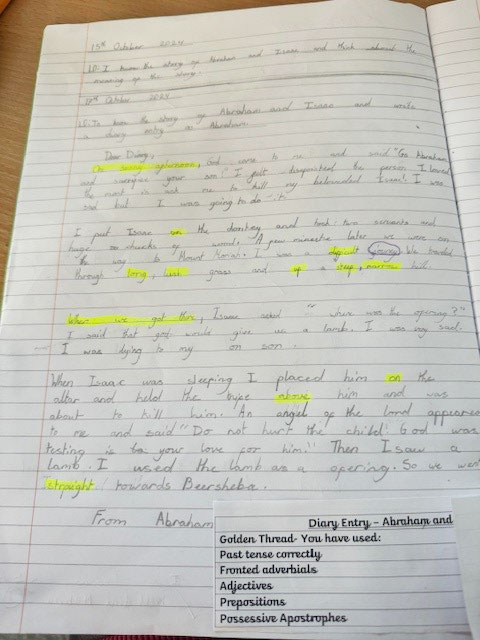 15th October 2024
LO: I know the story of Abraham and Isaac and think about the
meaning of the story.
17th October 2024
LO: To know the story of Abraham and Isaac and write
a diary entry as Abraham.
Dear Diary,
On sunny afternoon, God came to me and said "Go Abraham
and sacrifice your son!" I felt the person I loved
the most is me to kill my Isaac! I was
sad but I was going to do it
I put Isaac on the donkey and took two servants and
huge chucks of wood. A few minastie later we were on
the way to Mount Moriah. I was a We traveled
through long, lush grass and up a steep, narrow hill.
When we got thier, Isaac asked " where was the opering?"
I said that god would give us a lamb. I was very sad.
I was lying to my on son.
When Isaac was sleeping I placed him on the
altar and held the knife above him and was
about to kill him. An angel of the lord appeared
to me and said "Do not hurt the child! God was
testing your love for him!" Then I saw a
lamb. I used the lamb as a opering. So we went
straight towards Beersheba.
From Abraham
Diary Entry – Abraham and
Golden Thread- You have used:
Past tense correctly
Fronted adverbials
Adjectives
Prepositions
Possessive Apostrophes